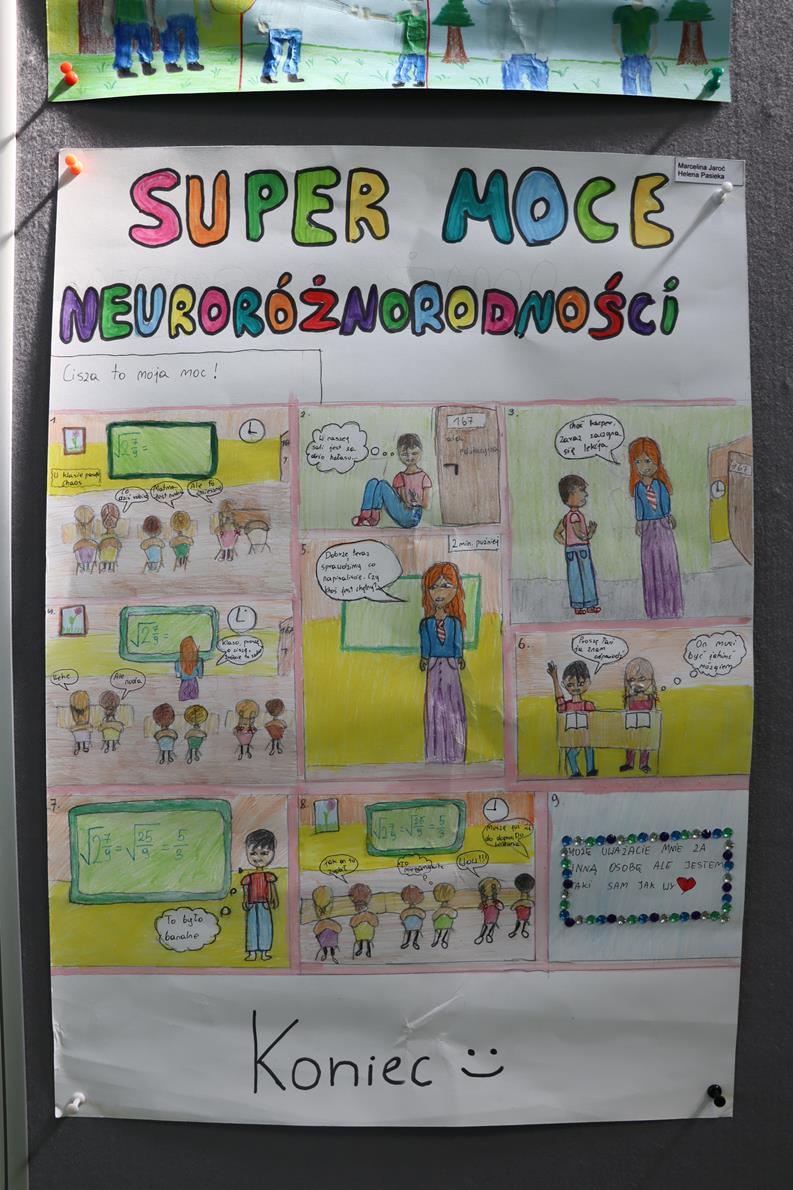 Marcelina Jaroć
Helena Pasieka
SUPER MOCE
NEURORÓŻNORODNOŚCI
Cisza to moja moc!
1
√2 7/9 =
U klasie panuje
chaos
Ale to
2.
U naszej
sali jest za
dużo hałasu...
167
3.
Choć Kacper,
Zaraz zaczyna
się lekcja
167
4.
√2 7/9 =
Klaso, proszę
o ciszę,
Hehe
Ale
nuda
5.
2 min. puźniej
Dobrze, teraz
sprawdzimy co
napisaliście. Czy
ktoś jest chętny?
6.
Proszę Pani
ja znam
odpowiedź
On musi
być jakimś
mózgiem
7.
√2 7/9 = √25/9 = 5/3
To było
banalne
8.
√2 7/9 = √25/9 = 5/3
Jak on to
zrobił
WoW!!!
9.
MOŻE UWAŻACIE MNIE ZA
INNĄ OSOBĘ ALE JESTEM
TAKI SAM JAK WY
Koniec